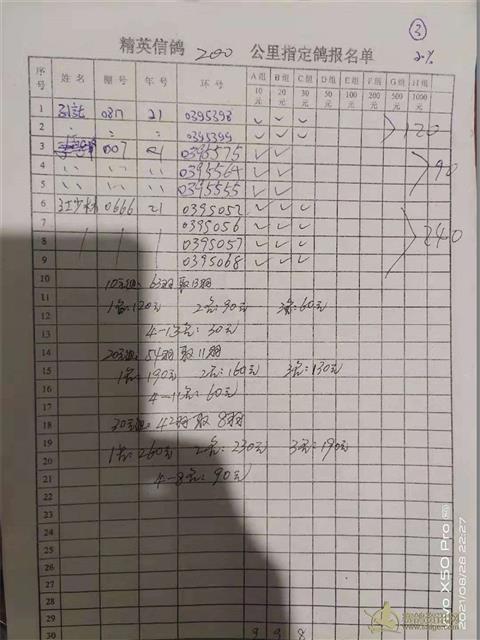 ③
精英信鸽 200 公里指定鸽报名单 2%
序号 姓名 棚号 年号 环号 A组10元 B组20元 C组30元 D组50元 E组100元 F组200元 G组500元 H组1000元
1 21 0395398 ✓ ✓ ✓
2 〃 〃 〃 0395399 ✓ ✓ ✓ 120
3 007 21 0395575 ✓ ✓
4 〃 〃 〃 0395564 ✓ ✓ 90
5 〃 〃 〃 0395555 ✓ ✓
6 江少林 0666 21 0395052 ✓ ✓ ✓
7 0395056 ✓ ✓ ✓
8 0395057 ✓ ✓ ✓ 240
9 0395068 ✓ ✓ ✓
10 10元组:63羽取13羽
11 1名:120元 2名:90元 3名:60元
12
13 4-13名:30元
14 20元组:54羽取11羽
15 1名:190元 2名:160元 3名:130元
16
17 4-11名:60元
18 30元组:42羽取8羽
19 1名:260元 2名:230元 3名:190元
20
21 4-8名:90元
22
23
24
25
26
27
28
29
30 9 9 8
vivo X50 Pro
2021/08/28 22:27